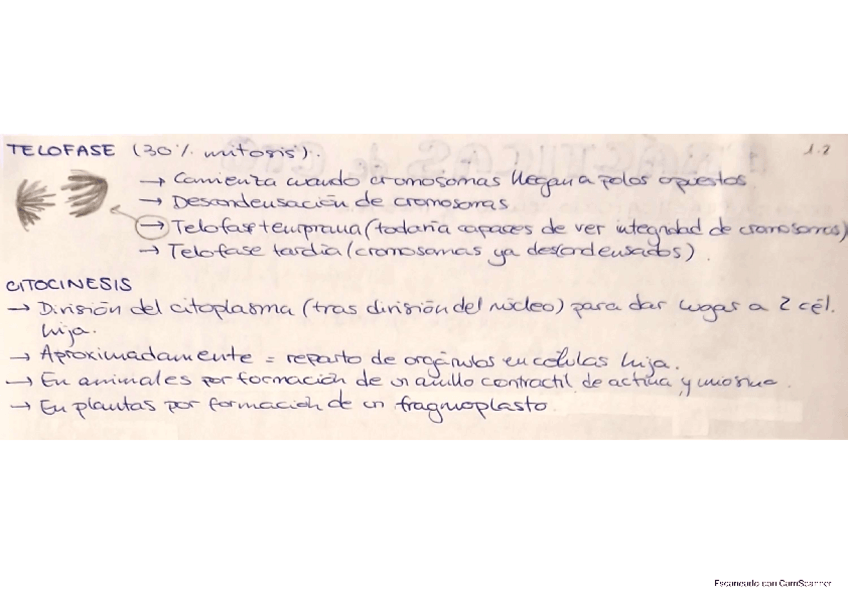 TELOFASE (30% mitosis).
1.2
→ Comienza cuando cromosomas llegan a polos opuestos
→ Descondensación de cromosomas
→ Telofase temprana (todavía capaces de ver integridad de cromosomas)
→ Telofase tardía (cromosomas ya descondensados).
CITOCINESIS
→ División del citoplasma (tras división del núcleo) para dar lugar a 2 cél.
hija.
→ Aproximadamente = reparto de orgánulos en células hija.
→ En animales por formación de un anillo contractil de actina y miosina.
→ En plantas por formación de un fragmoplasto
Escaneado con CamScanner